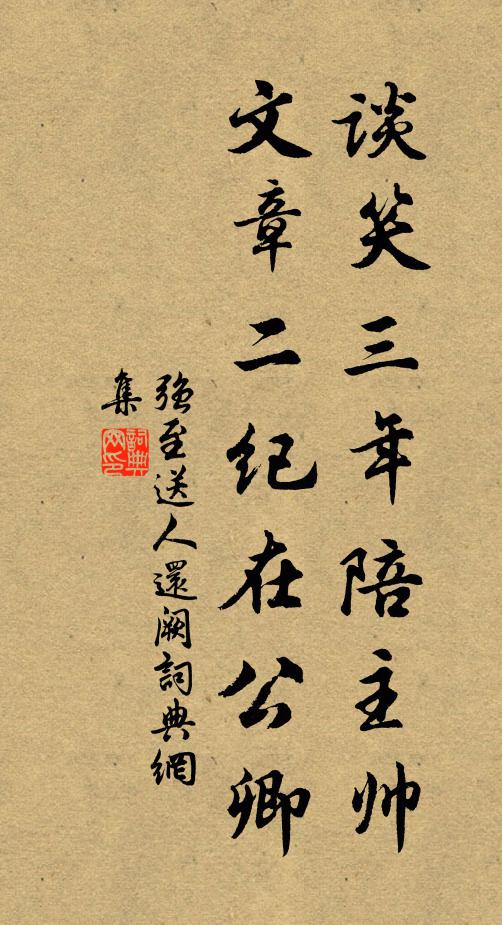 谈笑三年陪主帅
文章二纪在公卿
强至送人還阙詞典網
集
詞典
网印